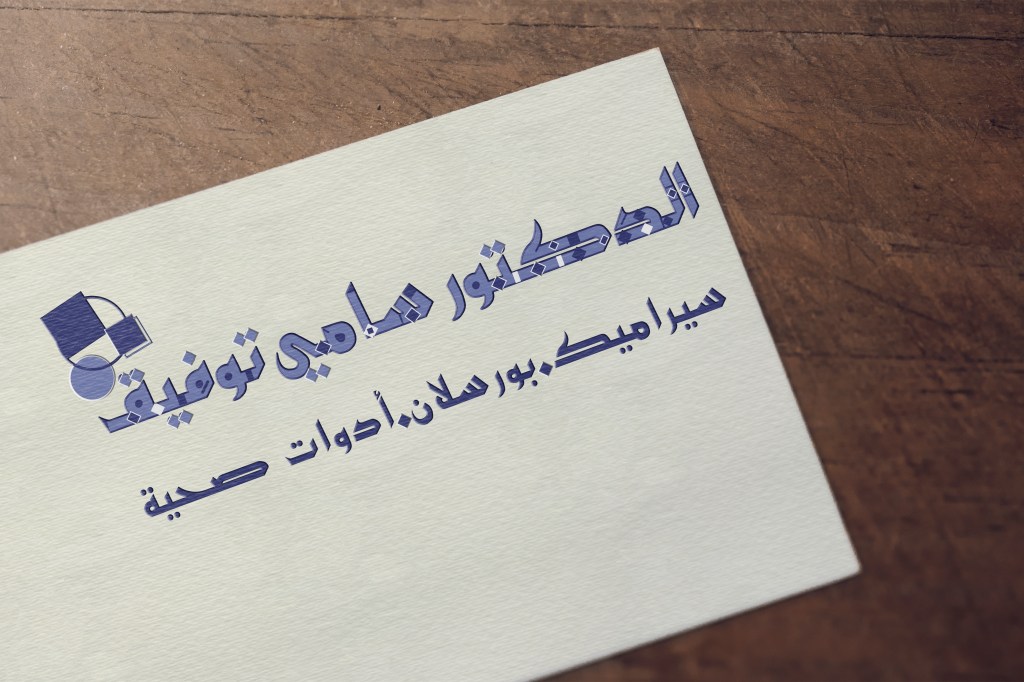 الدكتور سامي توفيق
سيراميك.بورسلان.أدوات صحية